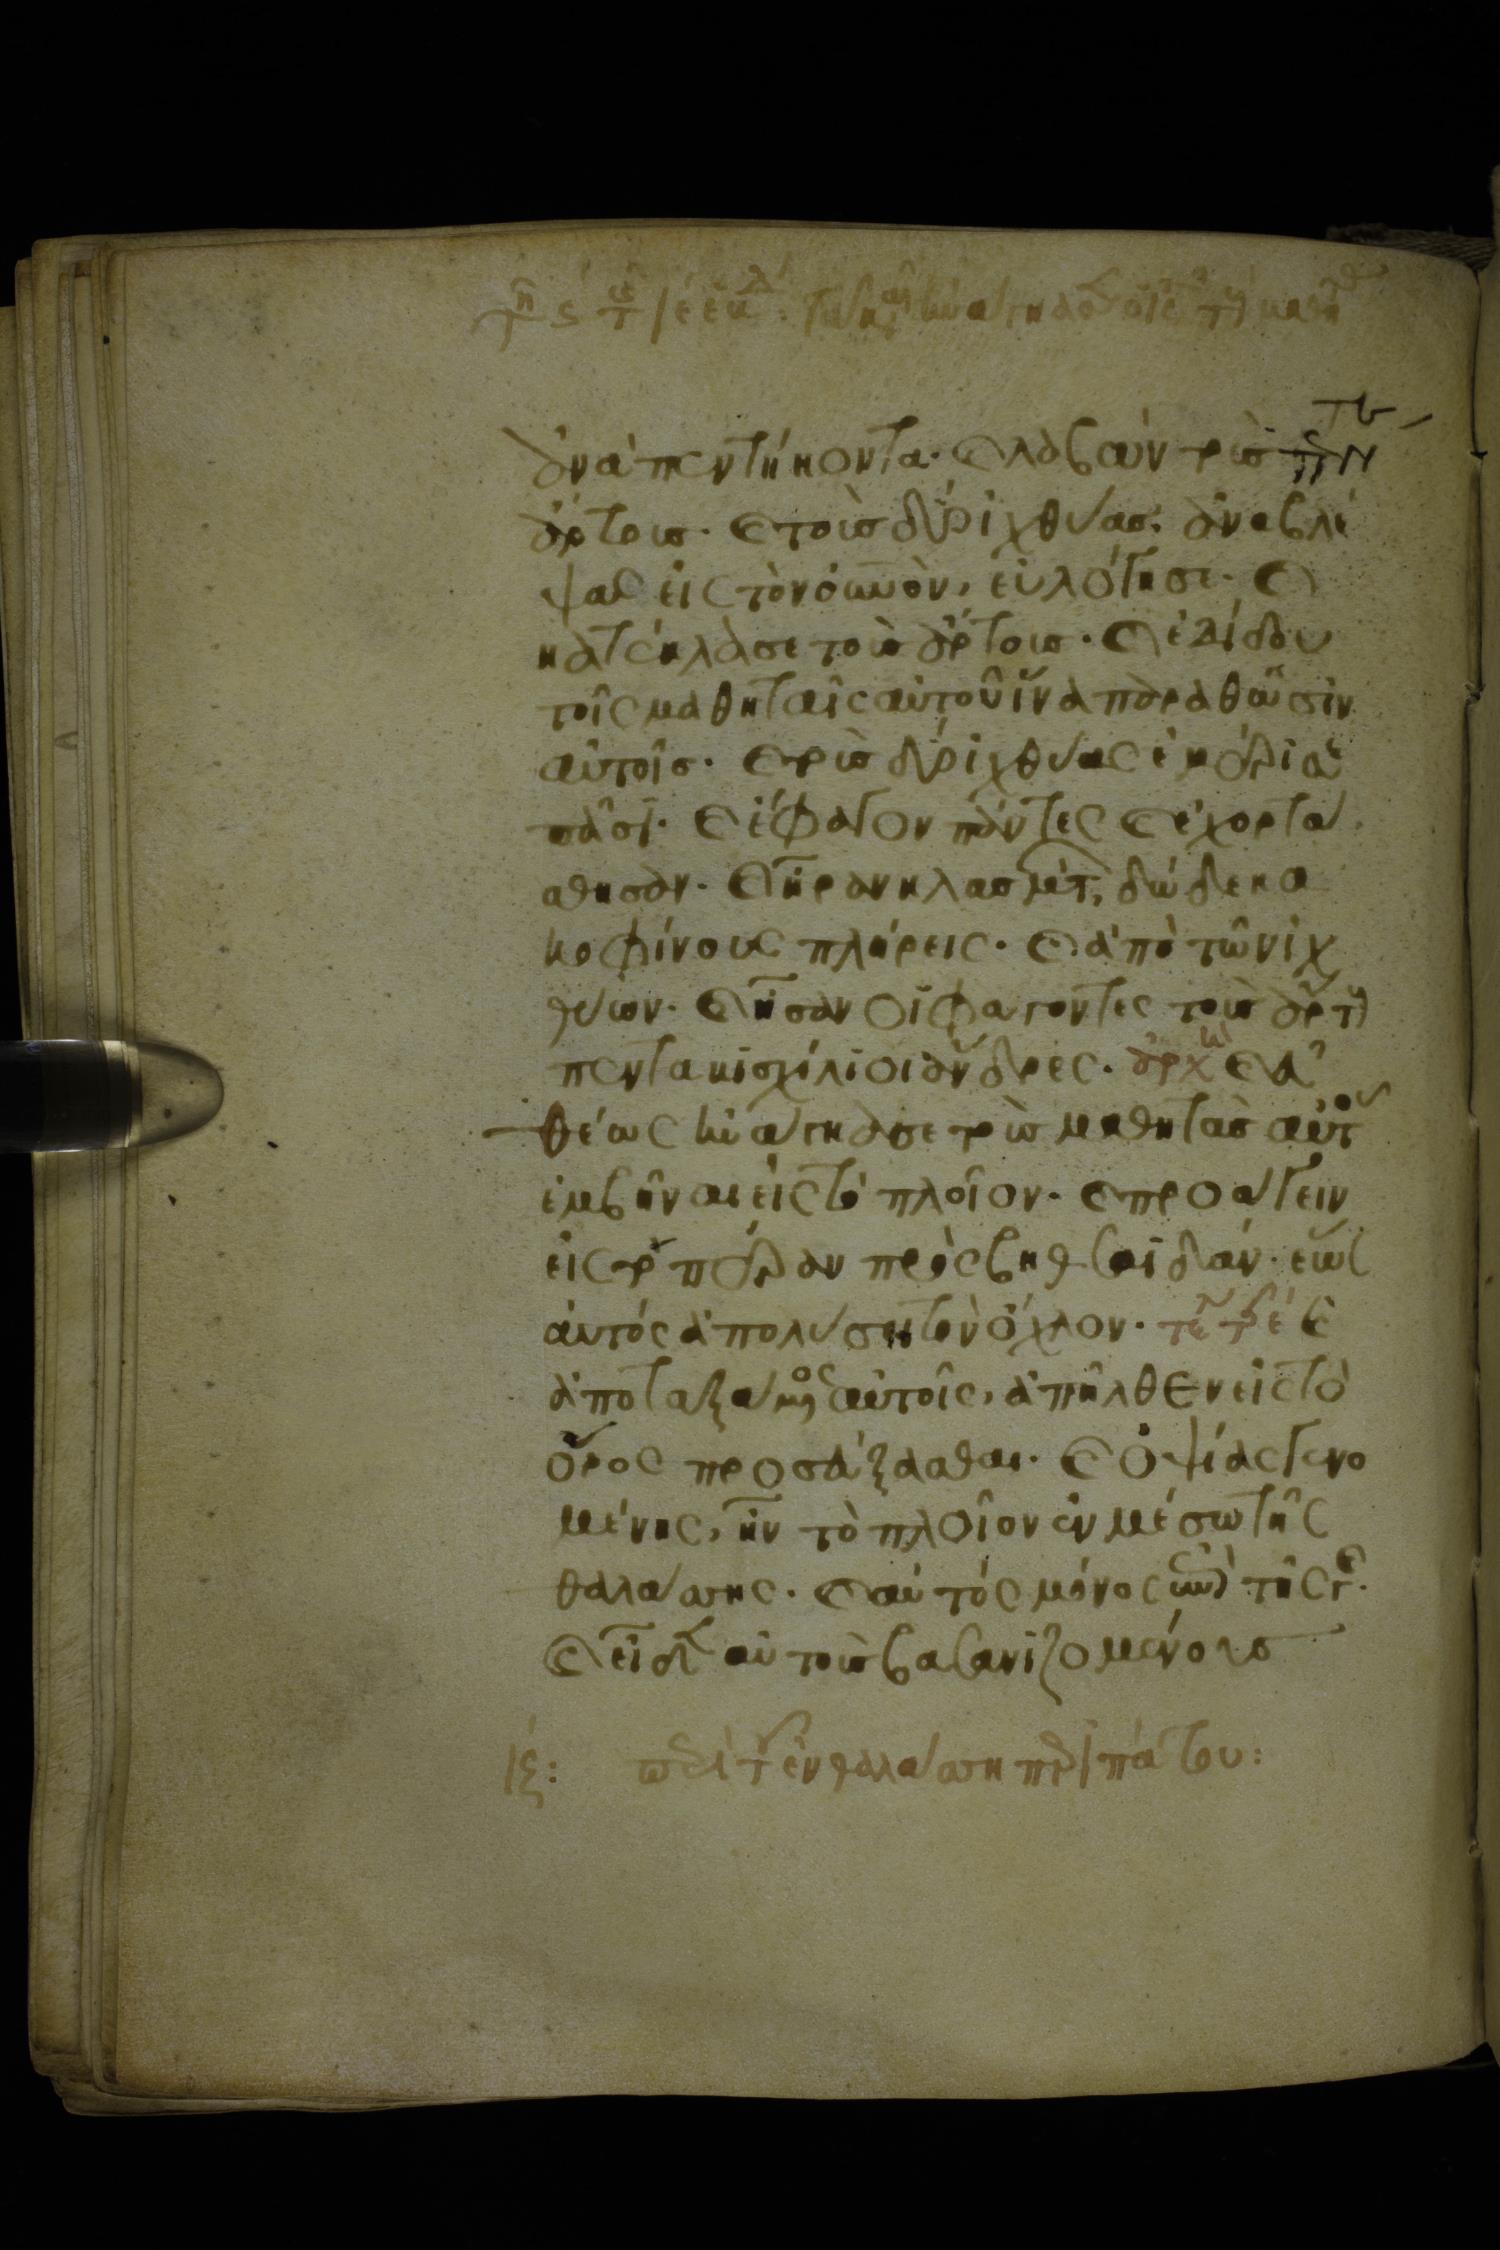 ἀνὰ πεντήκοντα· καὶ λαβὼν τοὺς πέντε
ἄρτους· καὶ τοὺς δύο ἰχθύας· ἀναβλέ
ψας εἰς τὸν οὐνὸν, εὐλόγησε· καὶ
κατέκλασε τοὺς ἄρτους· καὶ ἐδίδου
τοῖς μαθηταῖς αὐτοῦ ἵνα παραθῶσιν
αὐτοῖς· καὶ τοὺς δύο ἰχθύας ἐμέρισε
πᾶσι· καὶ ἔφαγον πάντες καὶ ἐχορτά
σθησαν· καὶ ἦραν κλασμάτ, δώδεκα
κοφίνους πλήρεις· καὶ ἀπὸ τῶν ἰχ
θύων· καὶ ἦσαν οἱ φαγόντες τοὺς ἄρτους
πεντακισχίλιοι ἄνδρες· ἀρχ καὶ εὐ
θέως ἠνάγκασε τοὺς μαθητὰς αὐτοῦ
ἐμβῆναι εἰς τὸ πλοῖον· καὶ προάγειν
εἰς τὸ πέραν πρὸς βηθσαϊδάν· ἕως
αὐτὸς ἀπολύσει τὸν ὄχλον· καὶ
ἀποταξάμενος αὐτοῖς, ἀπῆλθεν εἰς τὸ
ὄρος προσεύξασθαι· καὶ ὀψίας γενο
μένης, ἦν τὸ πλοῖον ἐν μέσω τῆς
θαλάσσης· καὶ αὐτὸς μόνος ἐπὶ τῆς γῆς·
καὶ εἶδεν αὐτοὺς βασανιζομένους
ιξ: περὶ τοῦ ἐν θαλάσση περιπάτου: